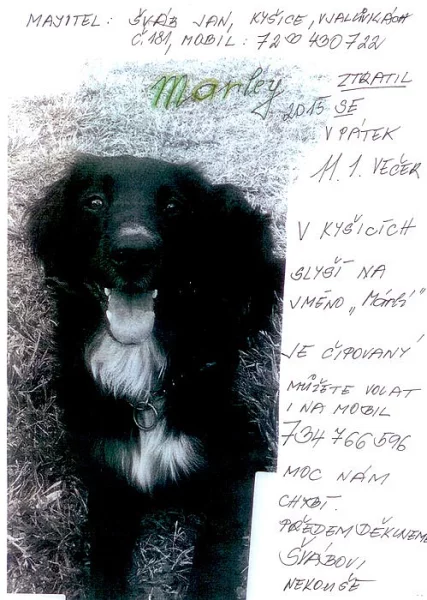 MAJITEL: ŠVÁB JAN, KYŠICE, V JALŮVKÁCH
Č 181, MOBIL: 728 430 722
Marley
ZTRATIL
2015 SE
V PÁTEK
11.1. VEČER
V KYŠICÍCH
SLYŠÍ NA
JMÉNO „Márlí"
JE ČIPOVANÝ
MŮŽETE VOLAT
I NA MOBIL
734 766 596
MOC NÁM
CHYBÍ.
PŘEDEM DĚKUJEME
ŠVÁBOVI
NEKOUŠE